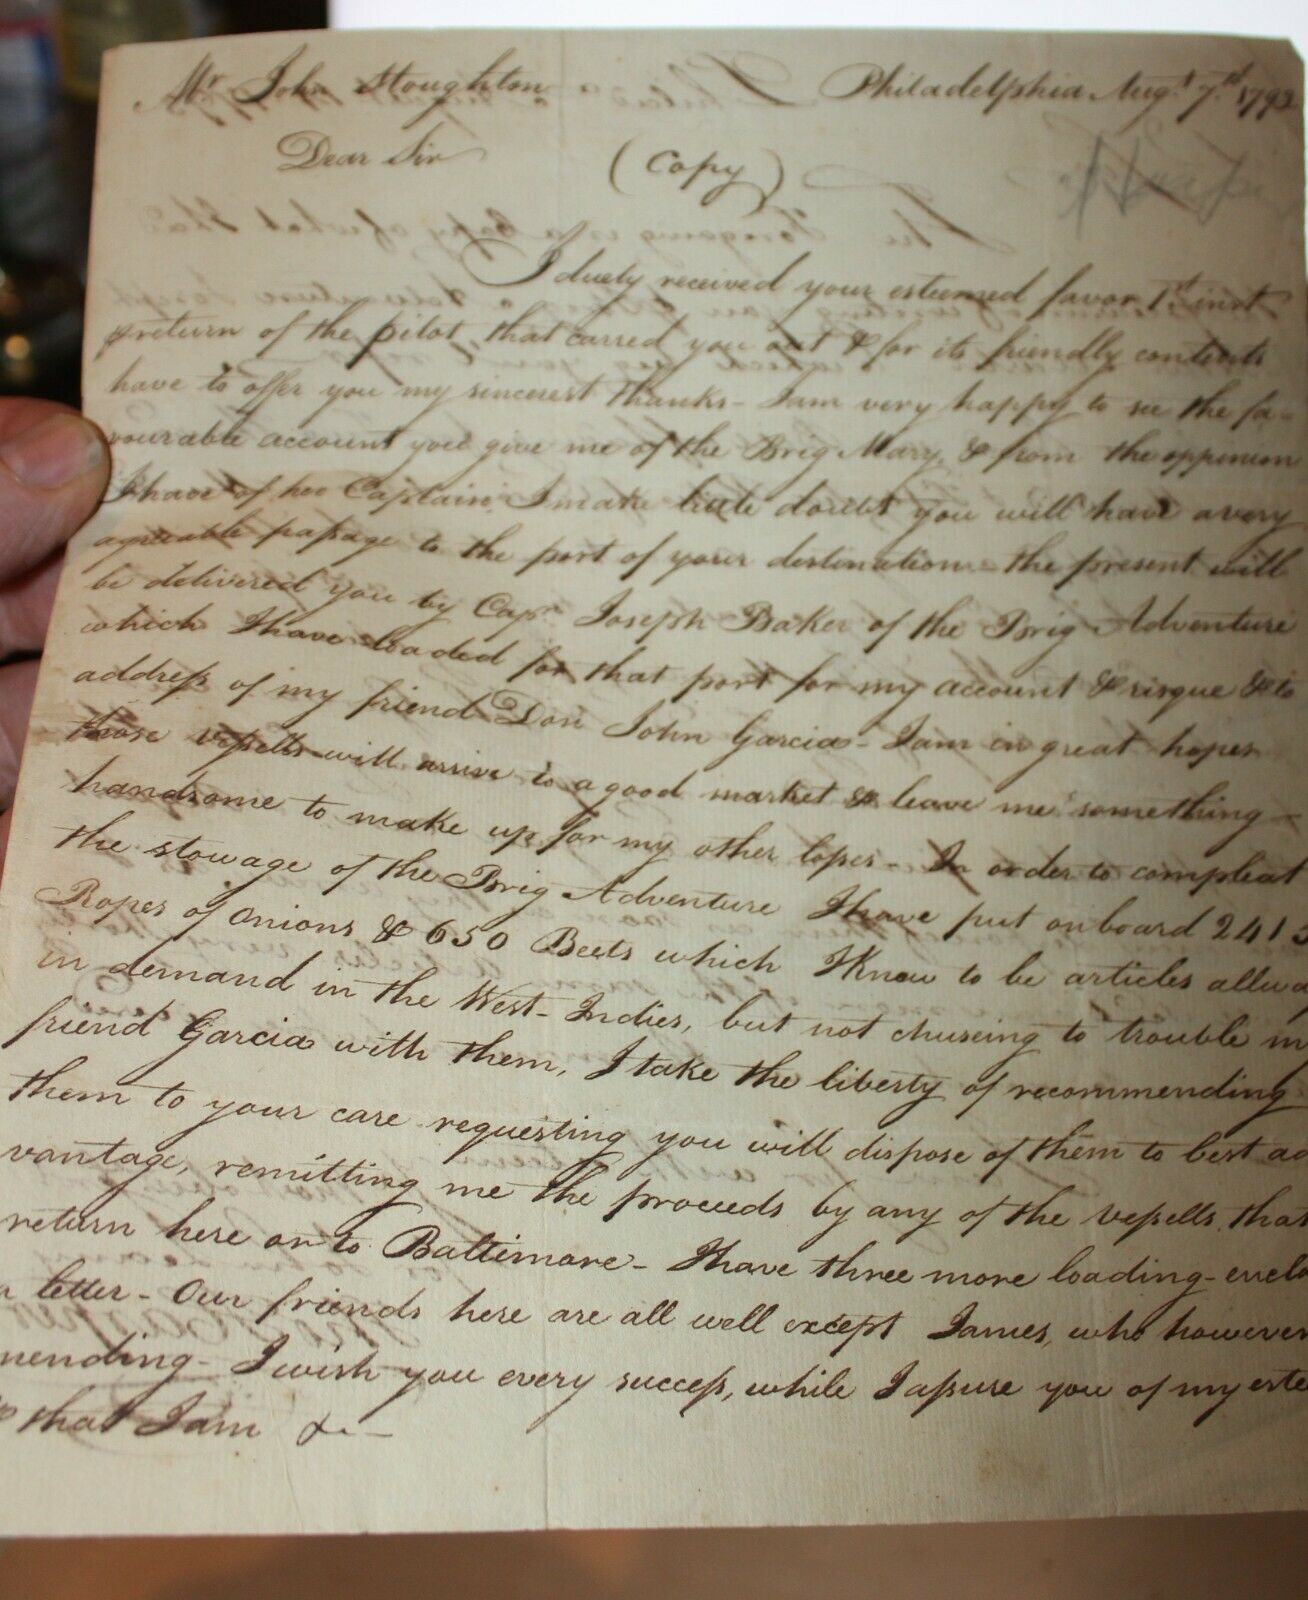 Mr John Stoughton Philadelphia Augt 7th 1793
Dear Sir (Copy)
I duely received your esteemed favor 1st inst
return of the pilot, that carred you out & for its friendly contents
have to offer you my sincerest thanks - I am very happy to see the fa-
vourable account you give me of the Brig Mary, & from the oppenion
I have of her Captain, I make little doubt you will have a very
agreeable passage to the port of your destination - the present will
be delivered you by Capn Joseph Baker of the Brig Adventure
which I have loaded for that port for my account & risque & to
address of my friend Don John Garcia - I am in great hopes
those vessells will arrive to a good market & leave me something
handsome to make up for my other losses - In order to compleat
the stowage of the Brig Adventure I have put on board 2413
Ropes of Onions & 650 Beets which I know to be articles allwa
in demand in the West-Indies, but not chuseing to trouble m
friend Garcia with them, I take the liberty of recommending
them to your care requesting you will dispose of them to best ad
vantage, remitting me the proceeds by any of the vessells that
return here or to Baltimore - I have three more loading - enclo
a letter - Our friends here are all well except James, who however
mending - I wish you every success, while I assure you of my este
& that I am &c -